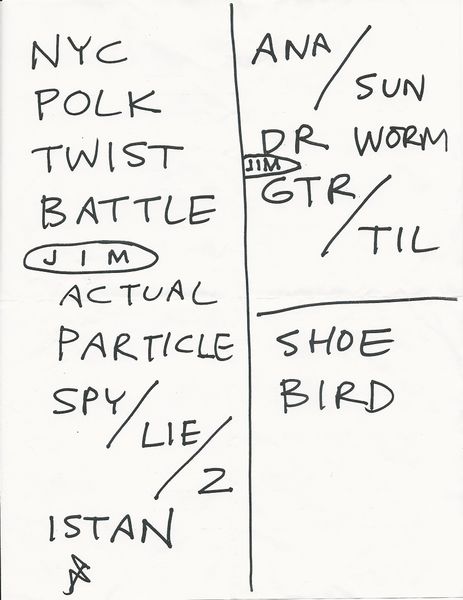 NYC
POLK
TWIST
BATTLE
JIM
ACTUAL
PARTICLE
SPY/
LIE/
2
ISTAN
ANA/
SUN
DR WORM
JIM
GTR/
TIL
SHOE
BIRD